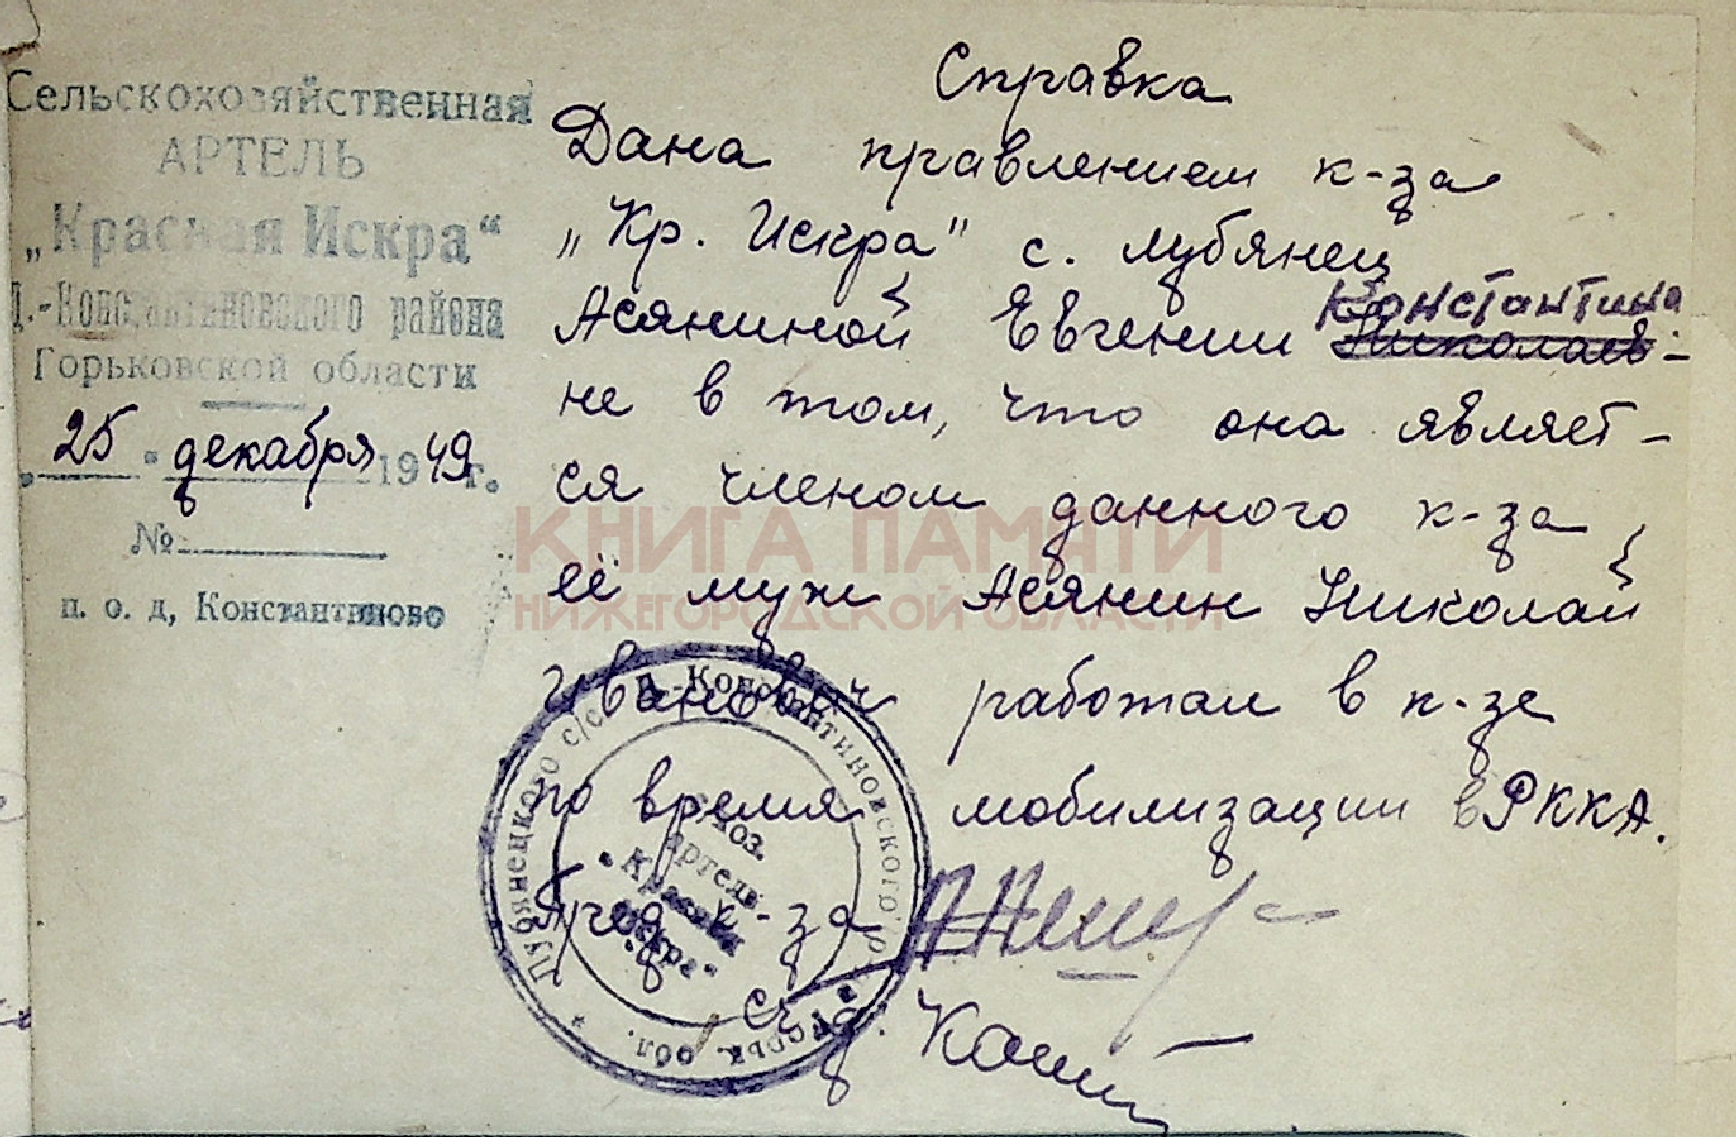 Сельскохозяйственная
АРТЕЛЬ
„Красная Искра“
Д.-Константиновского района
Горьковской области
25 декабря 1949 г.
№
п. о. д, Константиново
Справка
Дана правлением к-за
„Кр. Искра" с. Лубянец
Асяниной Евгении Константина
Николаев-
не в том, что она являет-
ся членом данного к-за
её муж Асянин Николай
Иванович работал в к-зе
по время мобилизации в РККА.
Пред к-за
сч
КНИГА ПАМЯТИ
НИЖЕГОРОДСКОЙ ОБЛАСТИ
Лубянецкого с/с Д.-Константиновского р. Горьк. обл.
с. хоз.
артель
„Красная
Искра“